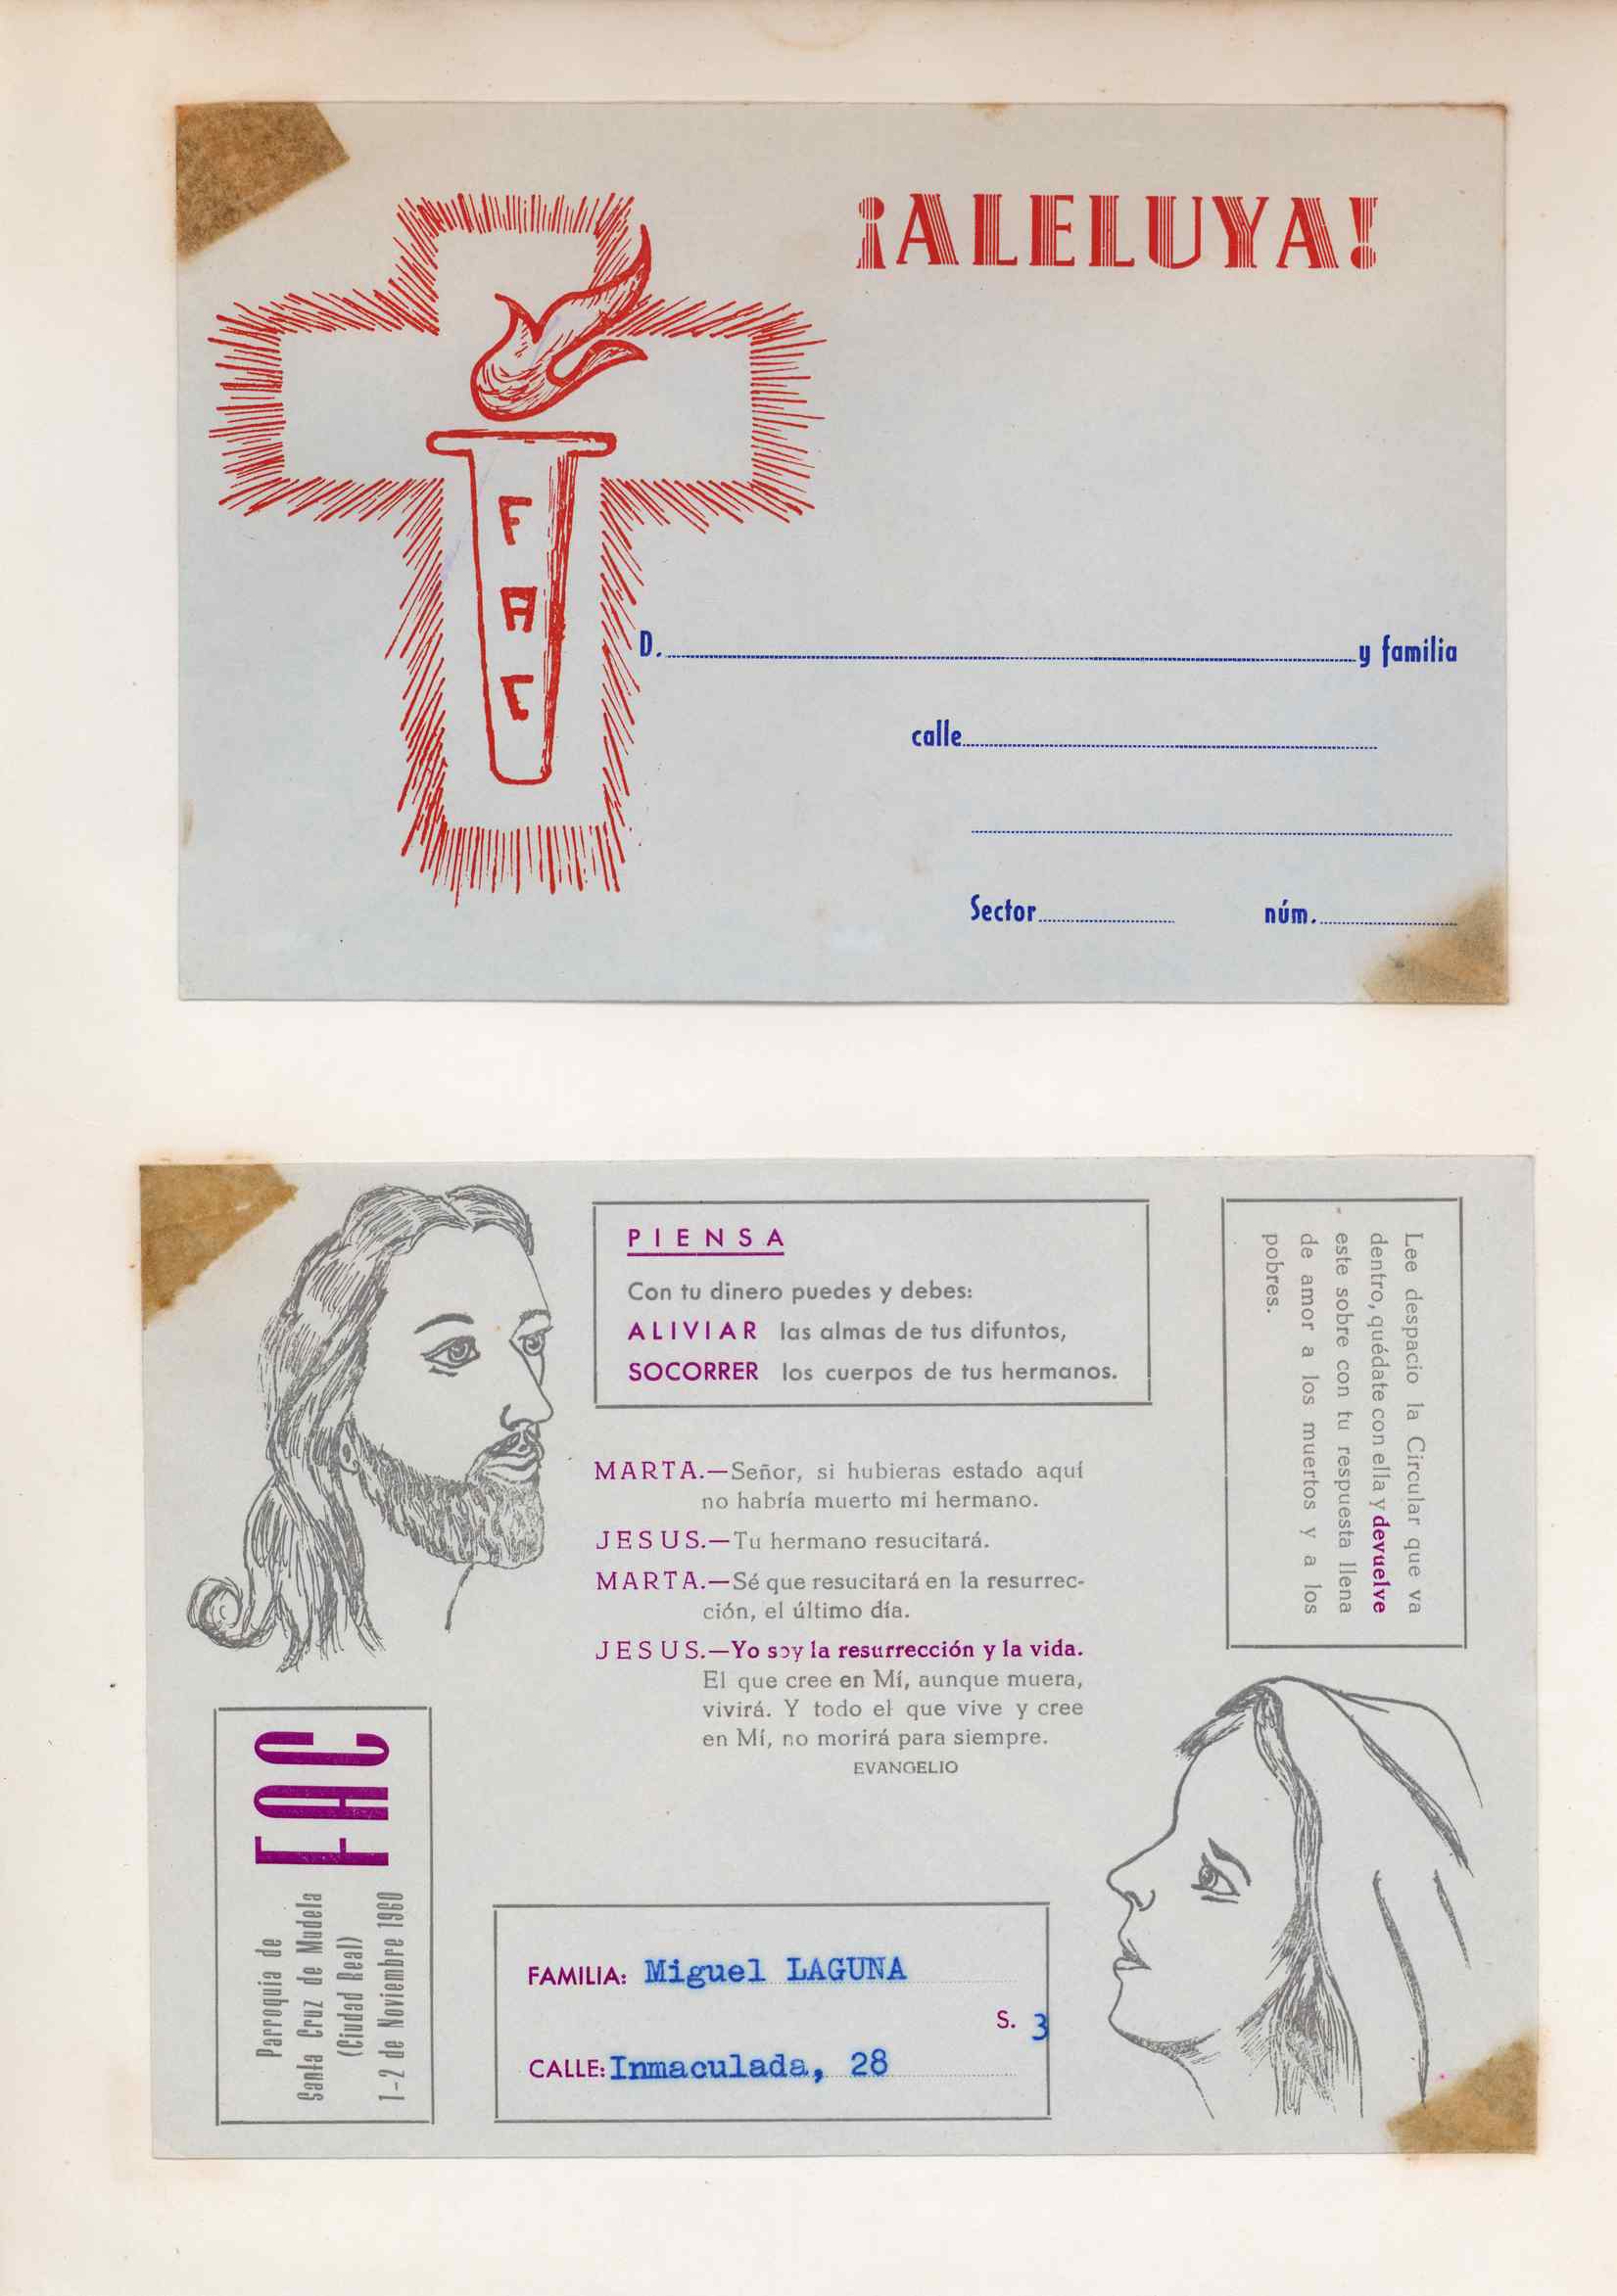 ¡ALELUYA!
F
A
C
D. y familia
calle
Sector núm.
PIENSA
Con tu dinero puedes y debes:
ALIVIAR las almas de tus difuntos,
SOCORRER los cuerpos de tus hermanos.
Lee despacio la Circular que va
dentro, quédate con ella y devuelve
este sobre con tu respuesta llena
de amor a los muertos y a los
pobres.
MARTA.—Señor, si hubieras estado aquí
no habría muerto mi hermano.
JESUS.—Tu hermano resucitará.
MARTA.—Sé que resucitará en la resurrec-
ción, el último día.
JESUS.—Yo soy la resurrección y la vida.
El que cree en Mí, aunque muera,
vivirá. Y todo el que vive y cree
en Mí, no morirá para siempre.
EVANGELIO
FAC
Parroquia de
Santa Cruz de Mudela
(Ciudad Real)
1-2 de Noviembre 1960
FAMILIA: Miguel LAGUNA
S. 3
CALLE: Inmaculada, 28